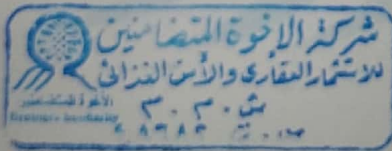 شركة الإخوة المتضامنين
للاستثمار العقاري والأمن الغذائي
ش.م.م
الأخوة المتضامنين